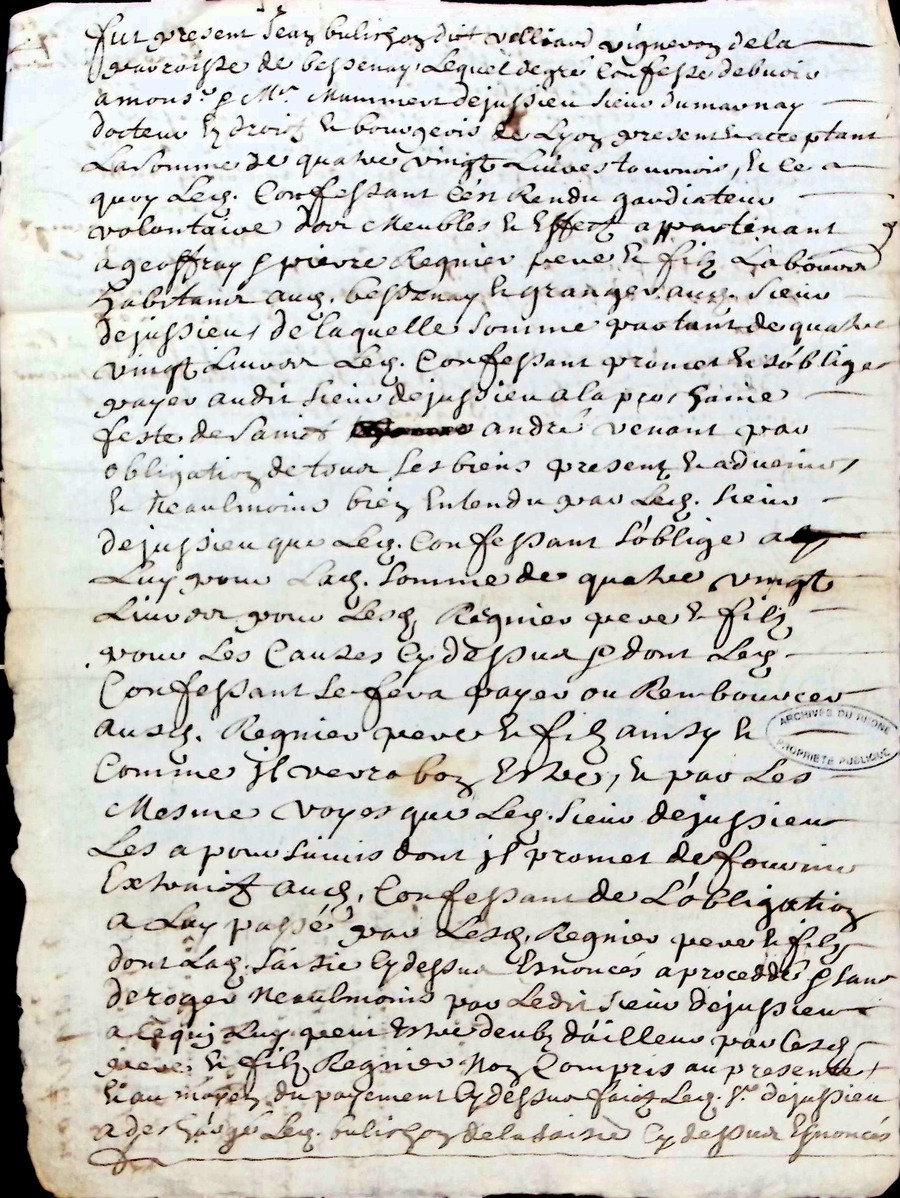 fut present Jean bulichon dit Villiard vigneron de la
parroisse de bessenay Lequel de gré Confesse debvoir
a mons.r Mr. Mummert dejussieu Sieur dumarnay
docteur en droict & bourgeois de Lyon present & acceptant
La Somme de quatre vingt Livres tournois, & Ce a
quoy Led. Confessant C'est Rendu gardiateur
volontaire dor Meubles & Effectz appartenant
a geoffray & pierre Regnier pere & filz Laboure.rs
habitans aud. bessenay & grangers aud. Sieur
dejussieu, de laquelle Somme partant de quatre
vingt Livres Led. Confessant promet & s'oblige
payer audit Sieur dejussieu a la prochaine
feste de Sainct andré venant par
obligation de tous Ses biens presentz & advenirs,
& Neaulmoins bien Entendu par Led. Sieur
dejussieu que Led. Confessant S'oblige a
Luy pour Lad. Somme de quatre vingt
Livres pour Lesd. Regnier pere & filz
pour Les Causes Cy dessus & dont Led.
Confessant Se fera payer ou Rembourcer
ausd. Regnier pere & filz ainsy &
Comme Jl verra bon Estre, & par Les
Mesme voyes que Led. Sieur dejussieu
Les a poursuivis dont jl promet de fournir
Extraict aud. Confessant de L'obligation
a Luy passé par Lesd. Regnier pere & filz
dont Lad. Saisie Cy dessus Esnoncés a proceddé & sans
deroger Neaulmoins par Ledit Sieur dejussieu
a Ce qui Luy peut Estre deub d'ailleur par Lesd.
pere & filz Regnier Non Compris au present
& au moyen du payement Cy dessus faict Led. Sr. dejussieu
a deschargé Led. bulichon de la Saisie Cy dessus Esnoncés
ARCHIVES DU RHONE
PROPRIÉTÉ PUBLIQUE